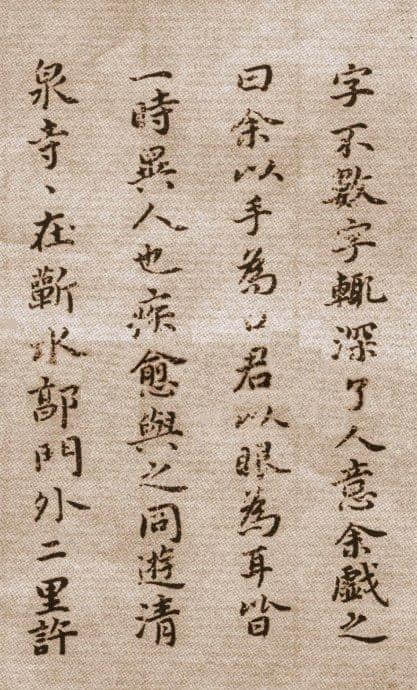 字不數字輒深了人意余戲之
曰余以手為口君以眼為耳皆
一時異人也疾愈與之同遊清
泉寺、在蘄水郭門外二里許